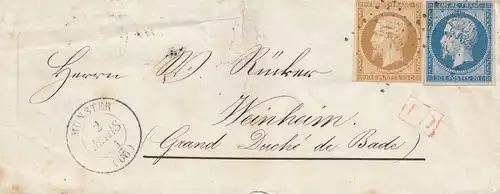 EMPIRE FRANC.
10 C. POSTES 10 C.
20 C. POSTES 20 C.
Herrn W. Rücker
Weinheim.
(Grand Duché de Bade)
MUNSTER
2
(66)
P.D.